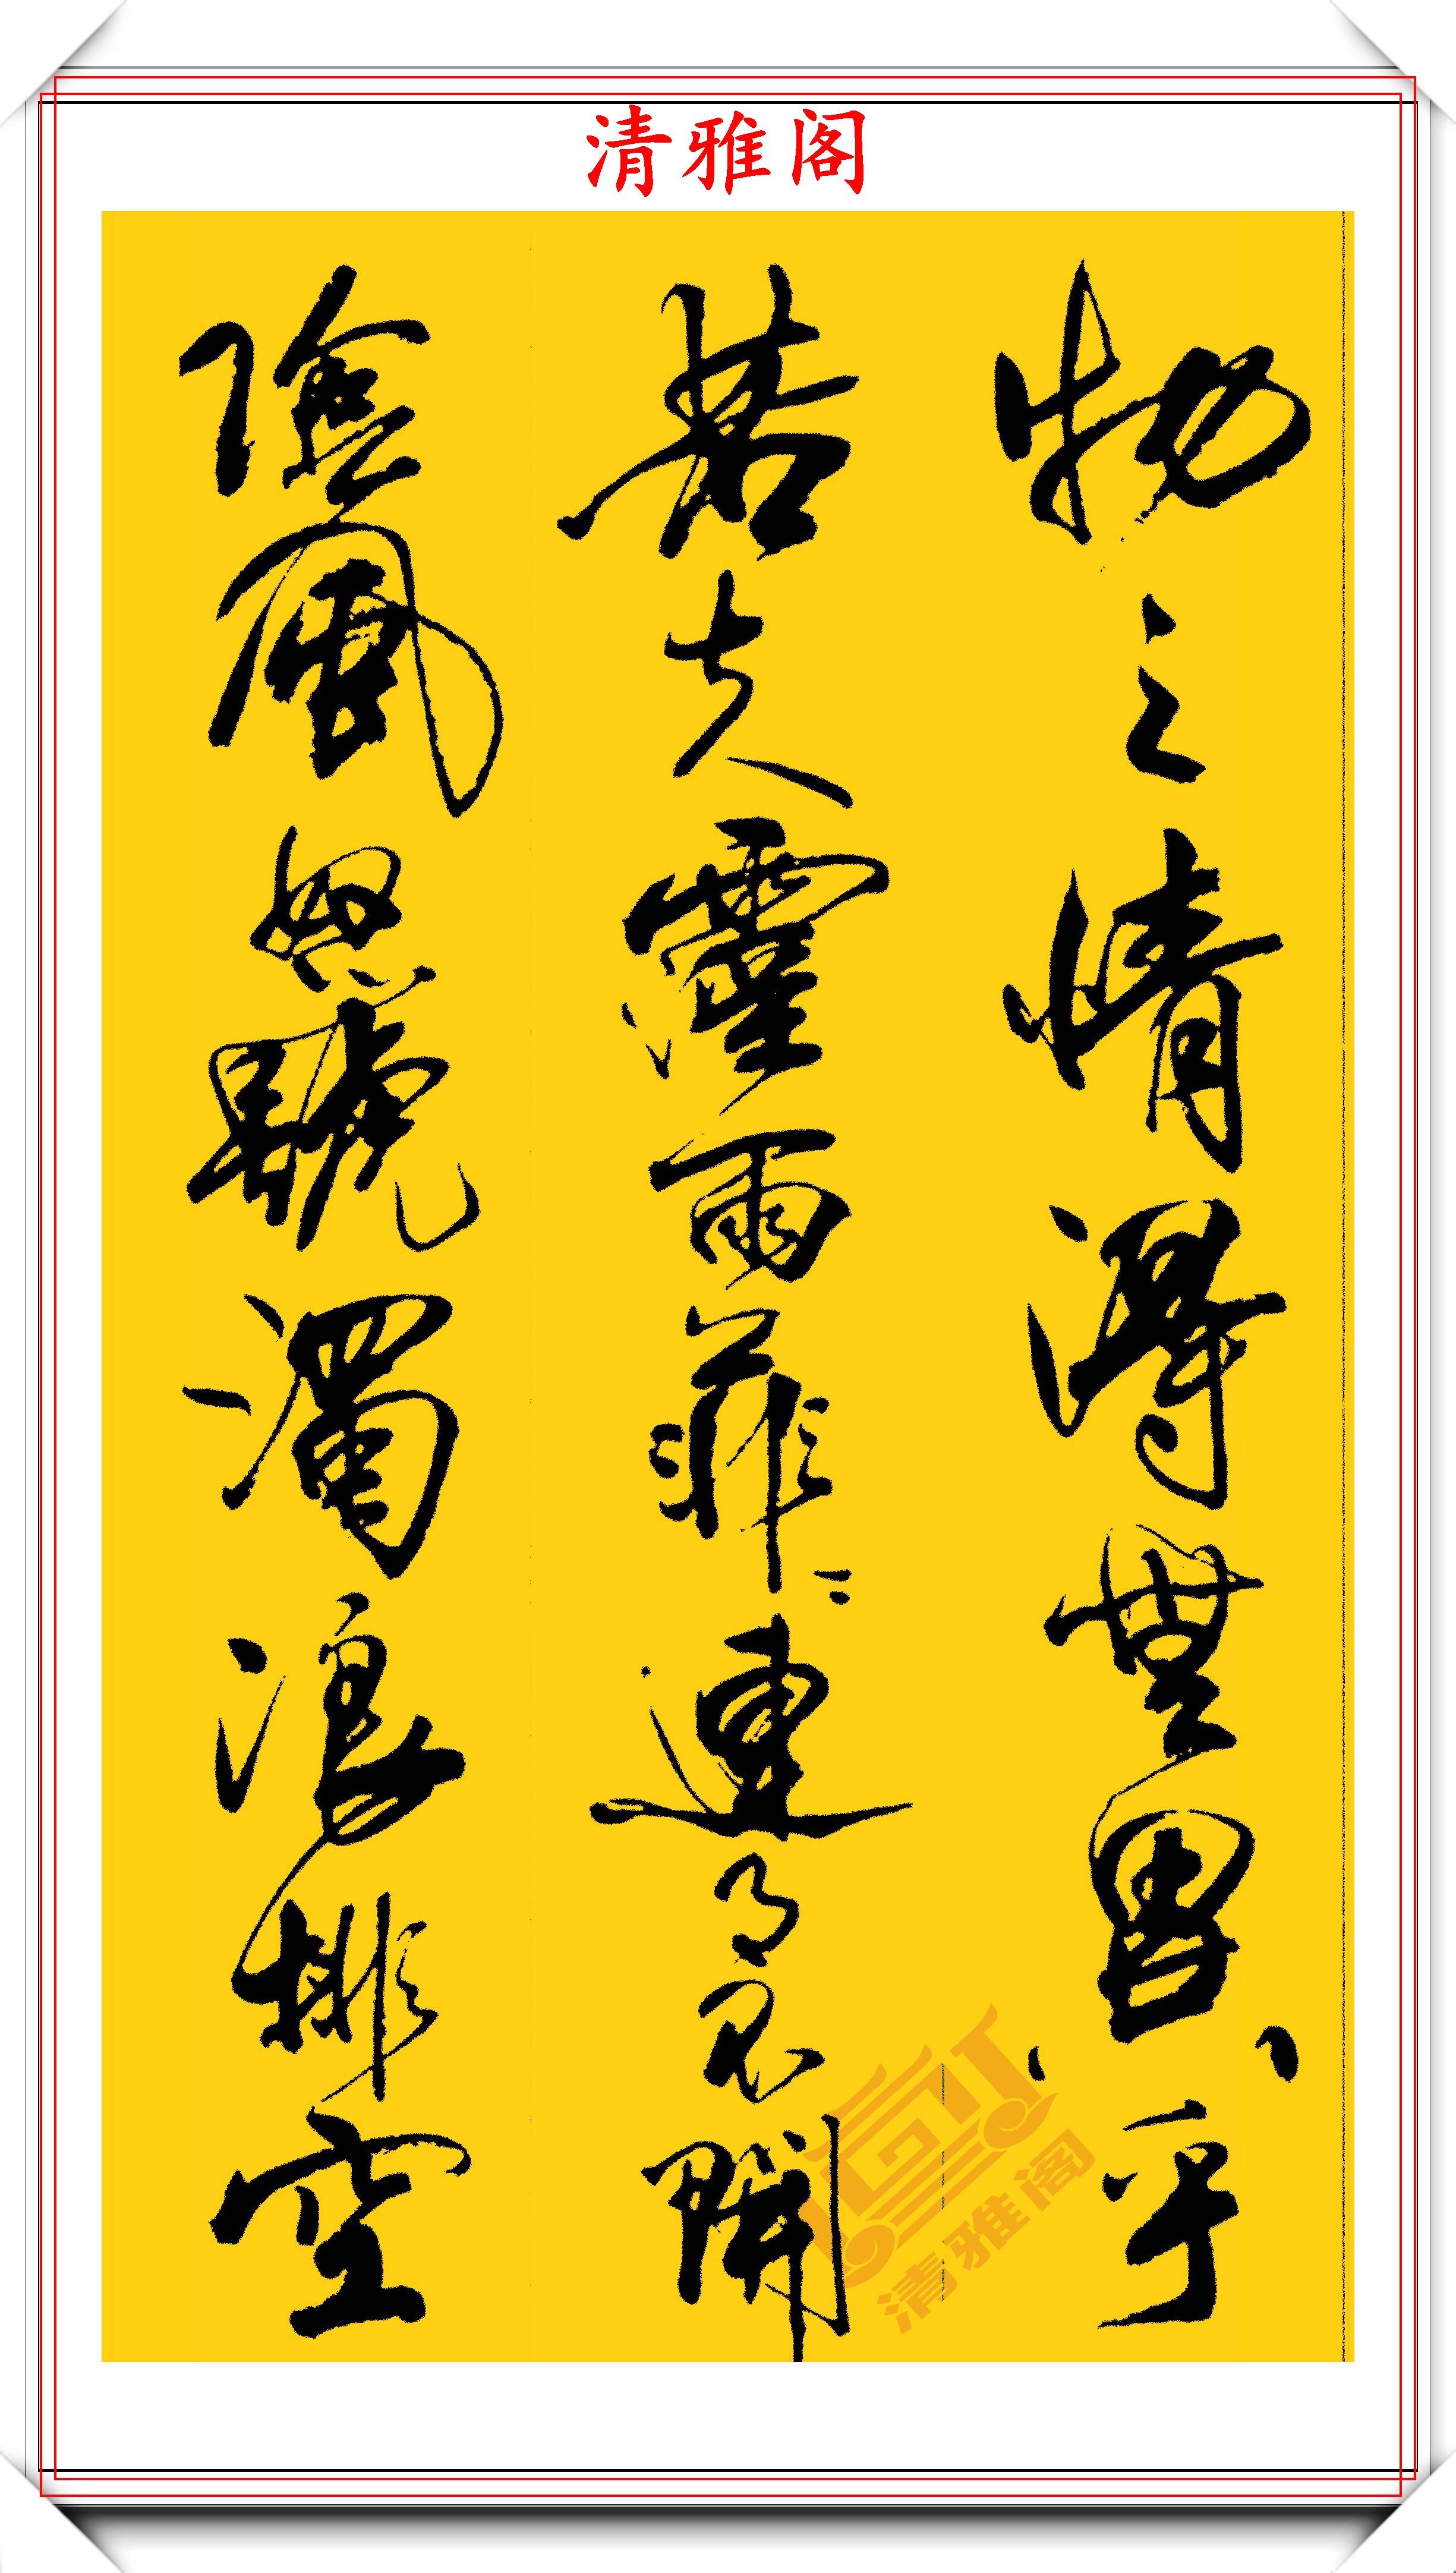 清雅阁
物之情得無異乎
若夫霪雨霏〻連月不開
陰風怒號濁浪排空
清雅阁